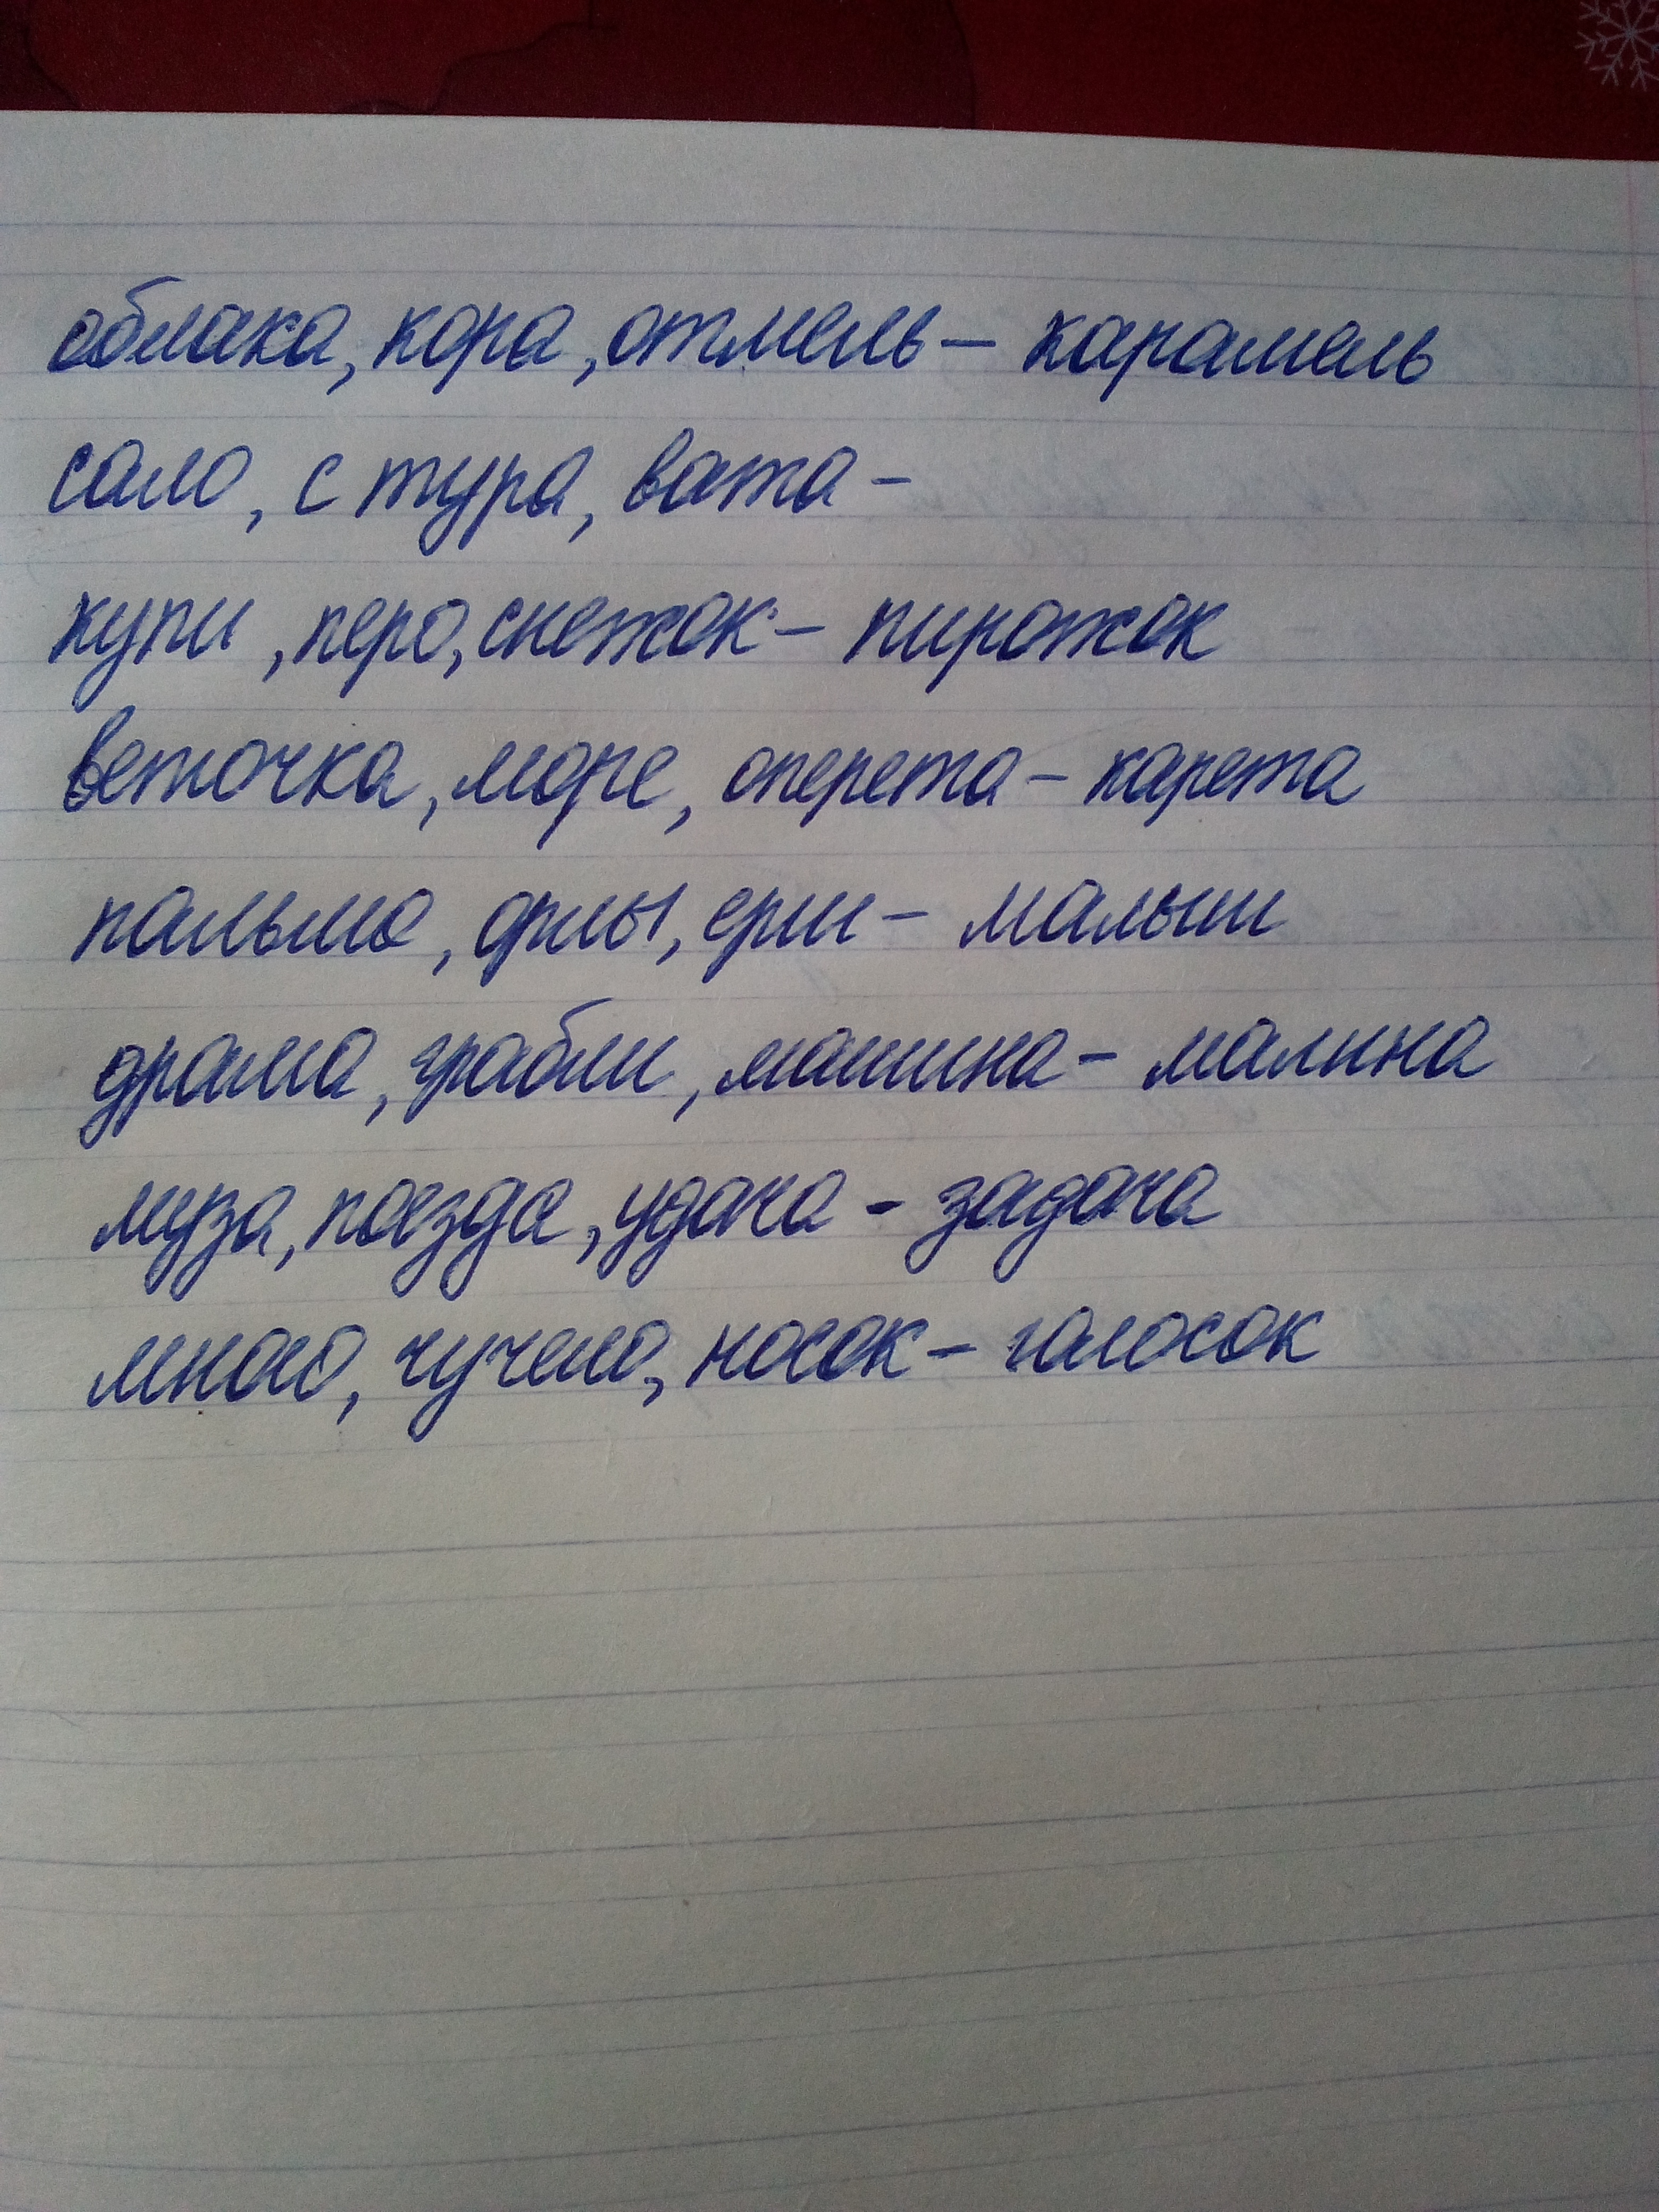 облака, кора, отмель – карамель
сало, с тура, вата –
купи, перо, снежок – пирожок
веточка, море, оперета – карета
пальма, ерши – малыш
драма, грабли, машина – малина
муза, поезда, удача – задача
много, чучело, носок – голосок